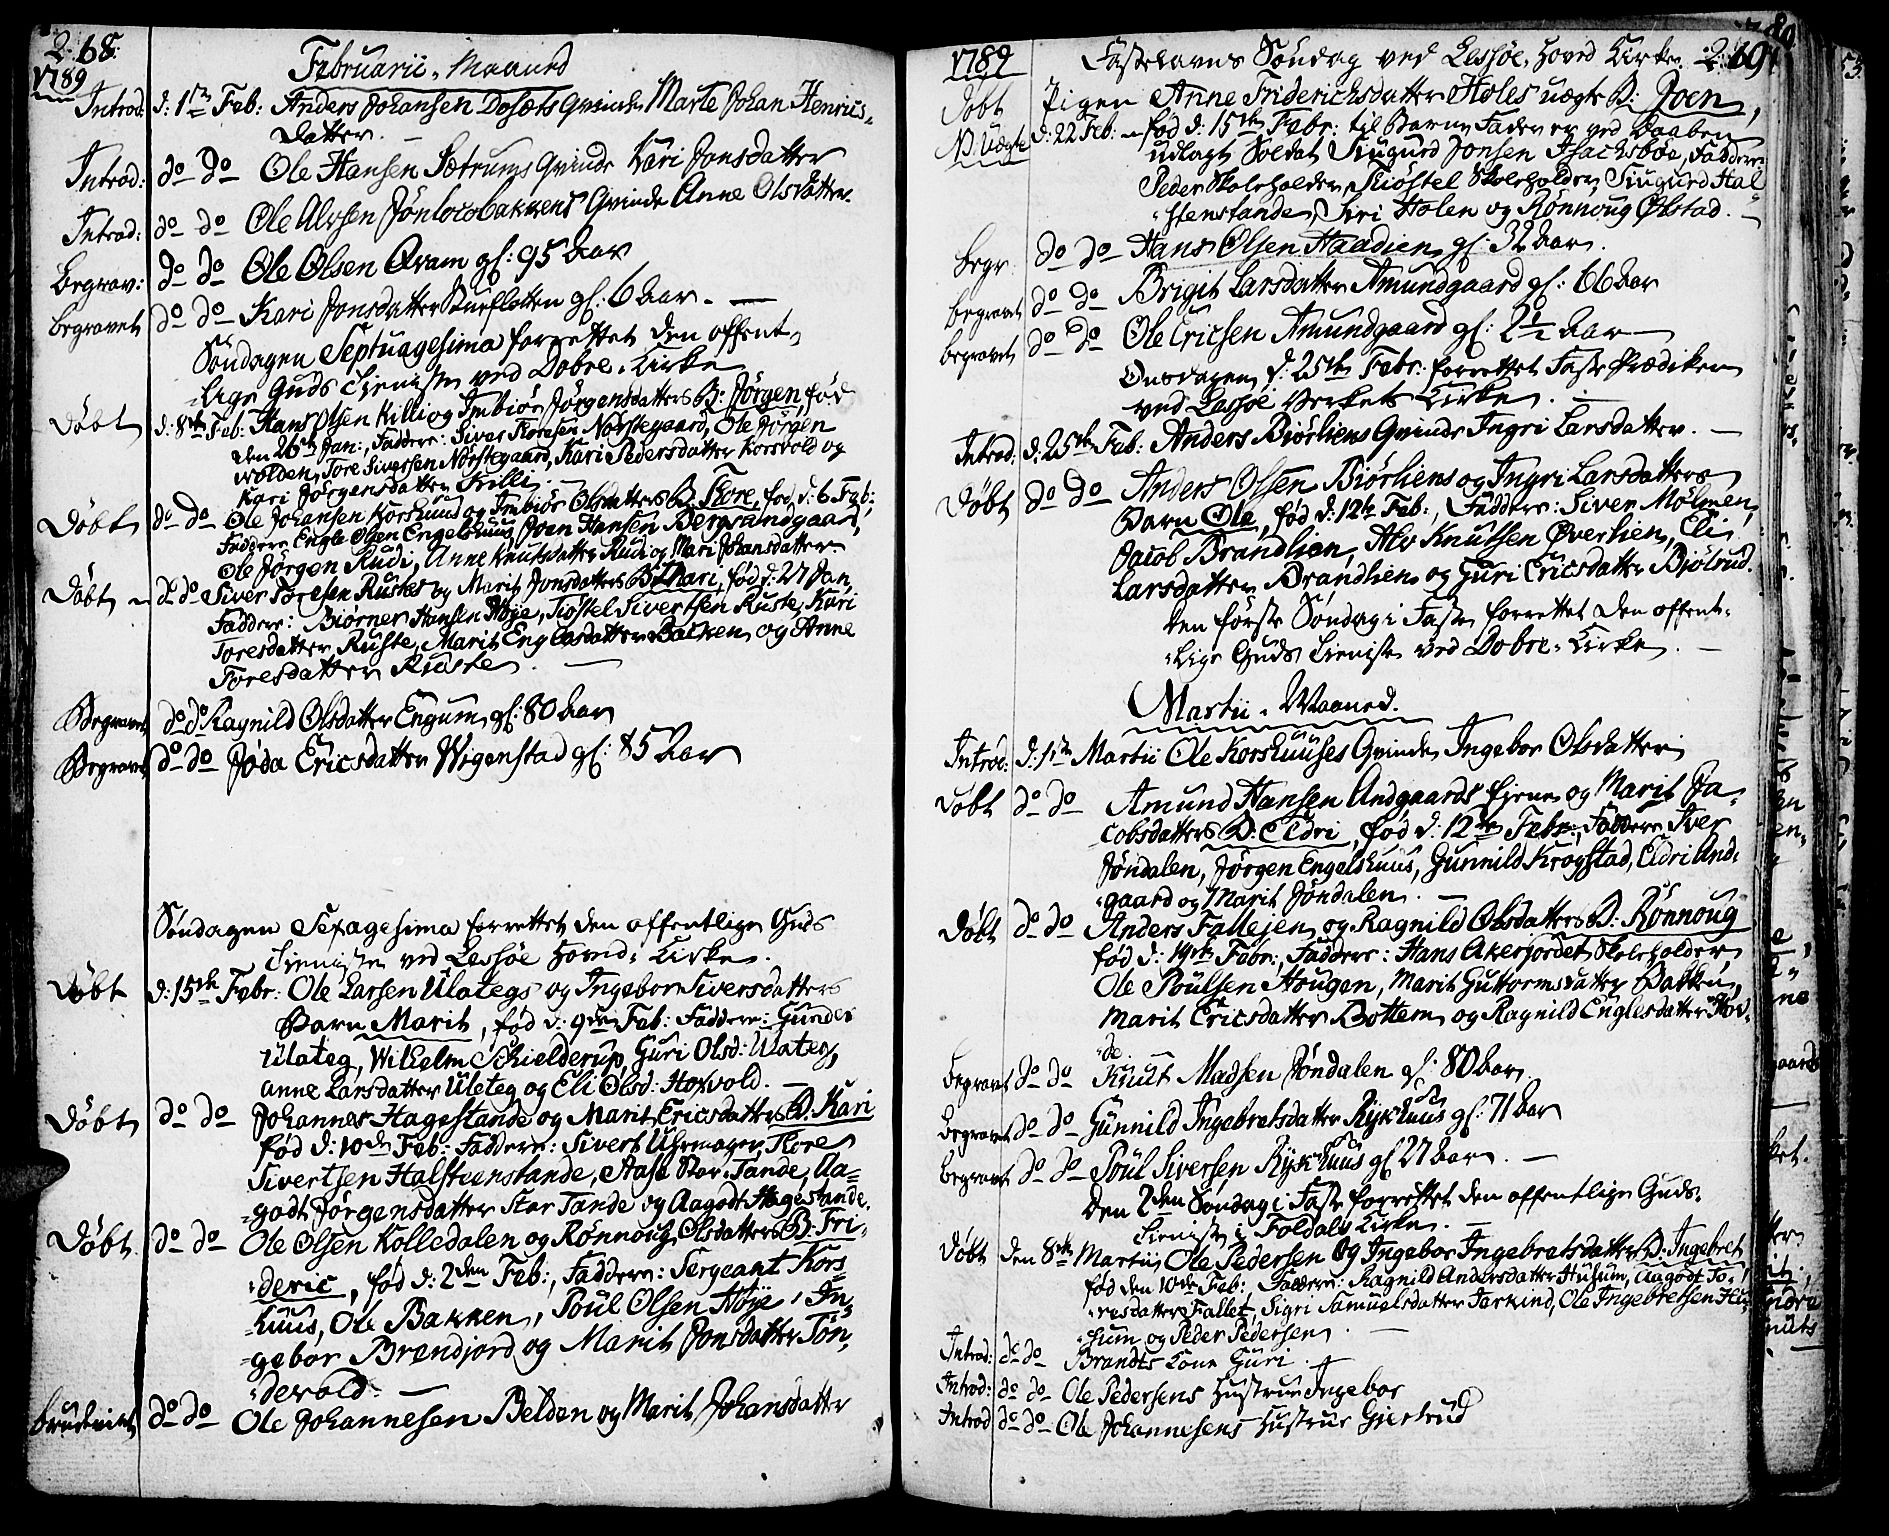 268.
1789
Februarii Maaned
Introd: d: 1ste Feb: Anders Johansen Dosæts Qvinde Marte Johan Henrics-
Datter. —
Introd: do do Ole Hansen Sætrums Qvinde Kari Jonsdatter
Introd: do do Ole Alvsen Qvinde Anne Olsdatter.
Begrav: do do Ole Olsen Qvam gl: 95 Aar
Begravet do do Kari Jonsdatter gl: 6 Aar. —
Søndagen Septuagesima forrettet den offent-
lige Guds Tieniste ved Dobre Kirke
Døbt d: 8de Feb: Hans Olsen Killi og Imbiør Jørgensdatters B: Jørgen, fød
den 26de Jan:, Faddere: Siver Toresen Nørstegaard, Ole Jørgen
wolden, Tore Siversen Nørstegaard, Kari Pedersdatter Korsvold og
Kari Jørgensdatter Killi. —
Døbt do do Ole Johansen Korshuus og Imbiør Olsdatters B: Tore, fød d: 6 Feb:,
Faddere Engle Olsen Engelshuus, Joen Hansen Bergsandgaard,
Ole Jørgen Rudi, Anne Knutsdatter Rudi og Mari Johansdatter.
Døbt do do Siver Toresen Rustes og Marit Jonsdatters B: Mari, fød d: 27 Jan,
Faddere: Biørner Hansen Høje, Kiøstel Sivertsen Ruste, Kari
Toresdatter Ruste, Marit Englesdatter Bakken og Anne
Toresdatter Ruste. —
Begravet do do Ragnild Olsdatter Engum gl: 80 Aar
Begravet do do Jøda Ericsdatter Wigenstad gl: 85 Aar
Søndagen Sexagesima forrettet den offentlige Guds
Tieniste ved Lessøe Hoved Kirke.
Døbt d: 15de Febr: Ole Larsen Ulategs og Ingebor Siversdatters
Barn Marit, fød d: 9de Feb: Faddere: Gunder
Ulateg, Wilhelm Schielderup, Guri Olsd: Ulateg,
Anne Larsdatter Uleteg og Eli Olsd: Horvold. —
Døbt do do Johannes Hagestande og Marit Ericsdatters B: Kari
fød d: 10de Feb: Faddere: Sivert Uhrmager, Tore
Sivertsen Halstenstande, Aase Stor Tande, Aa-
godt Jørgensdatter Stor Tande og Aagodt Hagestande.
Døbt do do Ole Olsen Kolledalen og Rønnoug Olsdatters B: Fri-
deric, fød d: 2den Feb:, Faddere: Sergeant Kors-
huus, Ole Bakken, Poul Olsen Høje, In-
gebor Brendjord og Marit Jonsdatter Tøn-
derold. —
do do Ole Johannesen Belden og Marit Johansdatter
1789
Fastelavns Søndag ved Lessøe Hoved Kirke. 269.
Døbt Pigen Anne Friderichsdatter Holes uægte B: Joen,
N: Uægte d: 22 Feb: fød d: 15de Febr: til Barne Fader er ved Daaben
udlagt Soldat Siugurd Jonsen Isachsbøe, Faddere:
Peder Skoleholder, Kiøstel Skoleholder, Siugurd Hal-
stenstande, Siri Holen og Rønnoug Økstad. —
Begr: do do Hans Olsen Haadien gl: 32 Aar.
Begravet do do Brigit Larsdatter Amundgaard gl: 66 Aar
Begravet do do Ole Ericsen Amundgaard gl: 2½ Aar —
Onsdagen d: 25de Febr: forrettet Faste Prædiken
ved Lessøe Verkets Kirke. —
Introd: d: 25de Feb: Anders Biørliens Qvinde Ingri Larsdatter. —
Døbt do do Anders Olsen Biørliens og Ingri Larsdatters
Barn Ole, fød d: 12te Feb:, Faddere: Siver Mølmen,
Jacob Brandlien, Alv Knutsen Øverlien, Eli
Larsdatter Brandlien og Guri Ericsdatter Bjølrud.
Den første Søndag i Faste forrettet den offent-
lige Guds Tieniste ved Dobre Kirke. —
Martii Maaned.
Introd: d: 1ste Martii Ole Korshuuses Qvinde Ingebor Olsdatter
Døbt do do Amund Hansen Andgaards og Marit Ja-
cobsdatters B: Eldri, fød d: 12te Febr:, Faddere Iver
Jøndalen, Jørgen Engelshuus, Gunnild Krogstad, Eldri And-
gaard og Marit Jøndalen. —
Døbt do do Anders Fallejen og Ragnild Olsdatters B: Rønnoug
fød d: 19de Febr:, Faddere: Hans Akerjordet Skoleholder,
Ole Poulsen Hougen, Marit Guttormsdatter Bakken,
Marit Ericsdatter Bottem og Ragnild Englesdatter Hov-
de.
Begravet do do Knut Madsen Jøndalen gl: 80 Aar.
Begravet do do Gunnild Ingebretsdatter Rykhuus gl: 71 Aar
Begravet do do Poul Siversen Rykhuus gl: 27 Aar. —
Den 2den Søndag i Faste forrettet den offentlige Guds-
Tieniste i Foldals Kirke. —
Døbt den 8de Martii Ole Pedersen og Ingebor Ingebretsdatters B: Ingebret,
fød den 10de Feb: Faddere: Ragnild Andersdatter Husum, Aagodt To-
resdatter Fallet, Sigri Samuelsdatter Jarkind, Ole Ingebretsen Hu-
sum og Peder Pedersen. —
Introd: do do Brandts Kone Guri.
Introd: do do Ole Pedersens Hustrue Ingebor
Introd do do Ole Johannesens Hustrue Giertrud